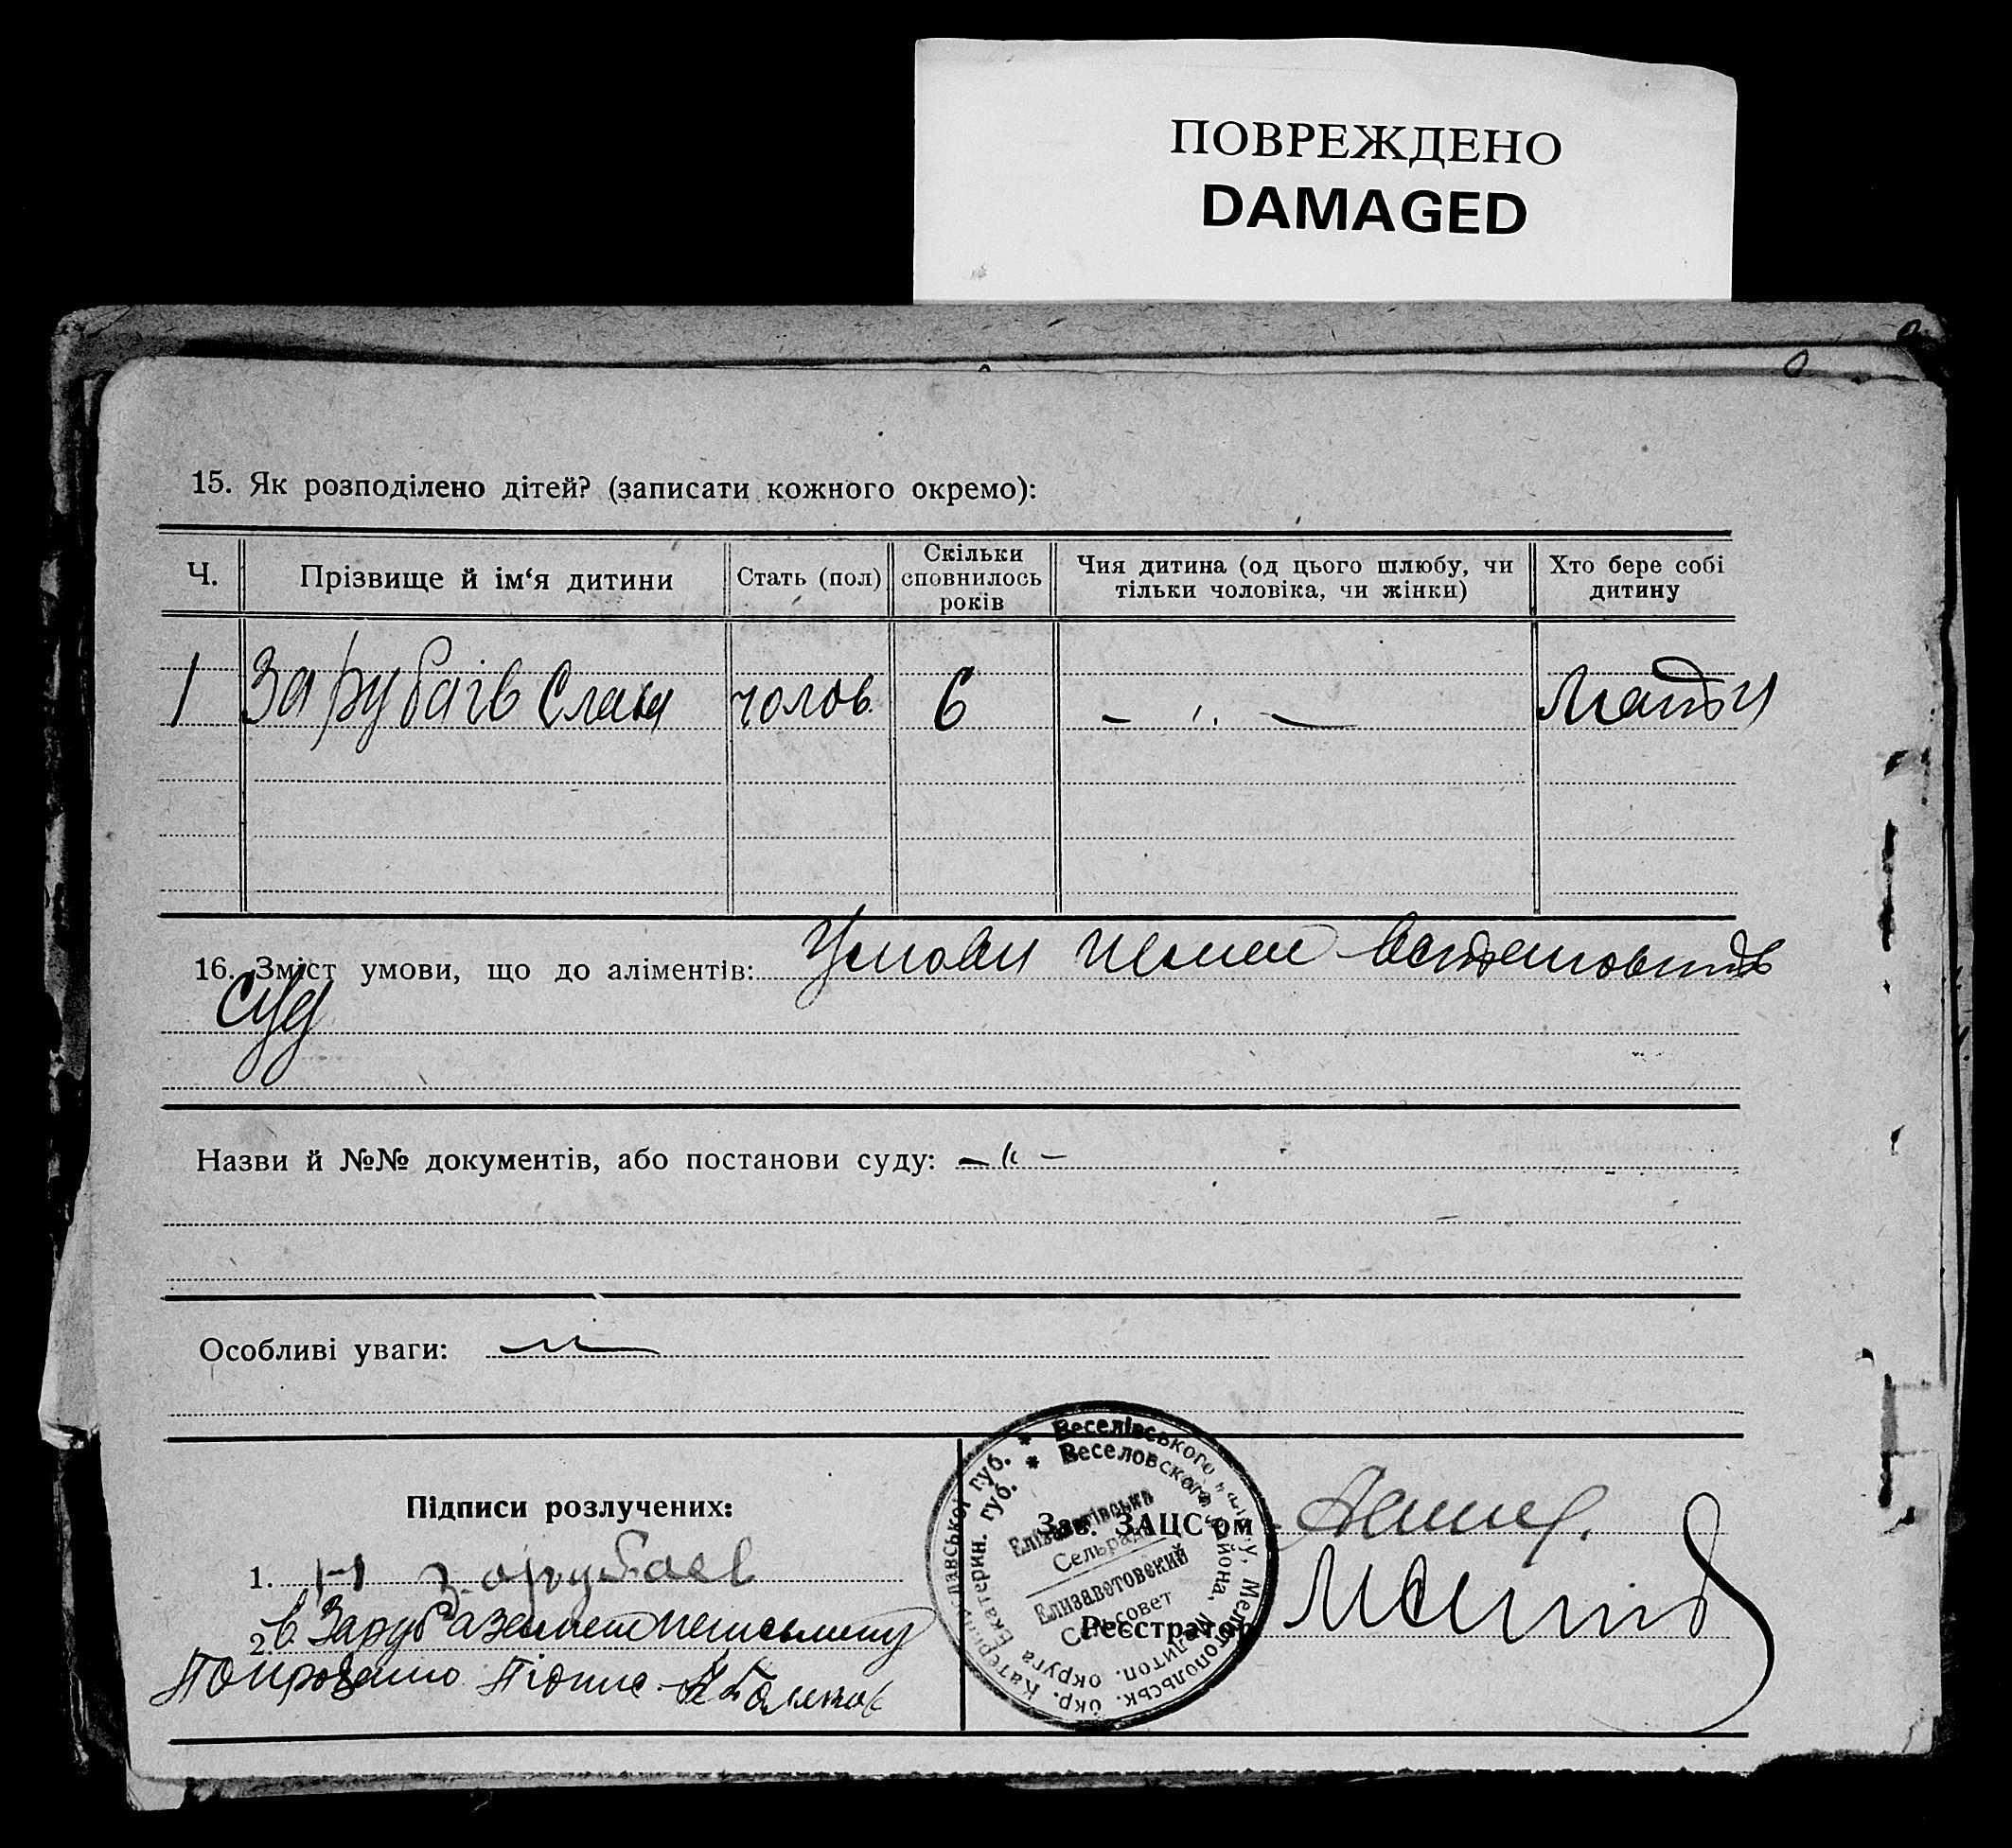 ПОВРЕЖДЕНО
DAMAGED
15. Як розподілено дітей? (записати кожного окремо):
Ч.
Прізвище й ім‘я дитини
Стать (пол)
Скільки сповнилось років
Чия дитина (од цього шлюбу, чи тільки чоловіка, чи жінки)
Хто бере собі дитину
1 Зарубаів чолов. 6 — „ — Мати
16. Зміст умови, що до аліментів: Умови
суд
Назви й №№ документів, або постанови суду: — „ —
Особливі уваги:
Підписи розлучених:
1. Н Зарубаев
2.
Підпис
Зав. ЗАЦС‘ом
Реєстратор
Катеринославської губ. * Веселівського району, Мелітопольськ. окр.
Екатерин. губ. * Веселовского района, Мелитоп. округа
Елізаветівська
Сельрада
Елизаветовский
Сельсовет